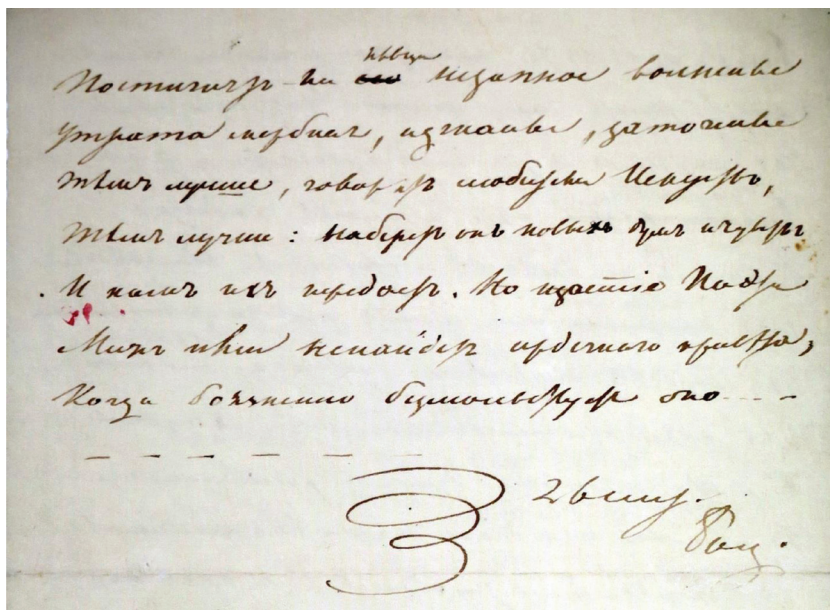 певца
Постигнетъ ли его незапное волненье
Утрата скорбная, изгнанье, заточенье
Тѣмъ лучше, говорятъ любители Искусствъ,
Тѣмъ лучше: наберетъ онъ новыхъ думъ и чувствъ
И намъ ихъ передастъ. Но щастіе Поэта
Межъ ими ненайдетъ сердечнаго привѣта,
Когда боязненно безмолвствуетъ оно - - - -
— — — — — —
26 сент.
Болд.